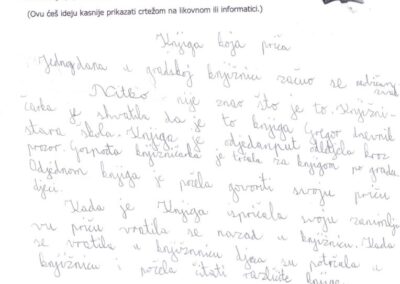 (Ovu ćeš ideju kasnije prikazati crtežom na likovnom ili informatici.)
Knjiga koja priča
Jednog dana u gradskoj knjižnici začuo se neobičan
zvuk
Nitko nije znao što je to. Knjižni-
čarka je shvatila da je to knjiga Gregov dnevnik
stara škola. Knjiga je odjedanput odletjela kroz
prozor. Gospođa knjižničarka je trčala za knjigom po gradu.
Odjednom knjiga je počela govoriti svoju priču
djeci.
Kada je Knjiga ispričala svoju zanimlji-
vu priču vratila se nazad u knjižnicu. Kada
se vratila u knjižnnicu djeca su potrčala u
knjižnicu i počela čitati različite knjige.